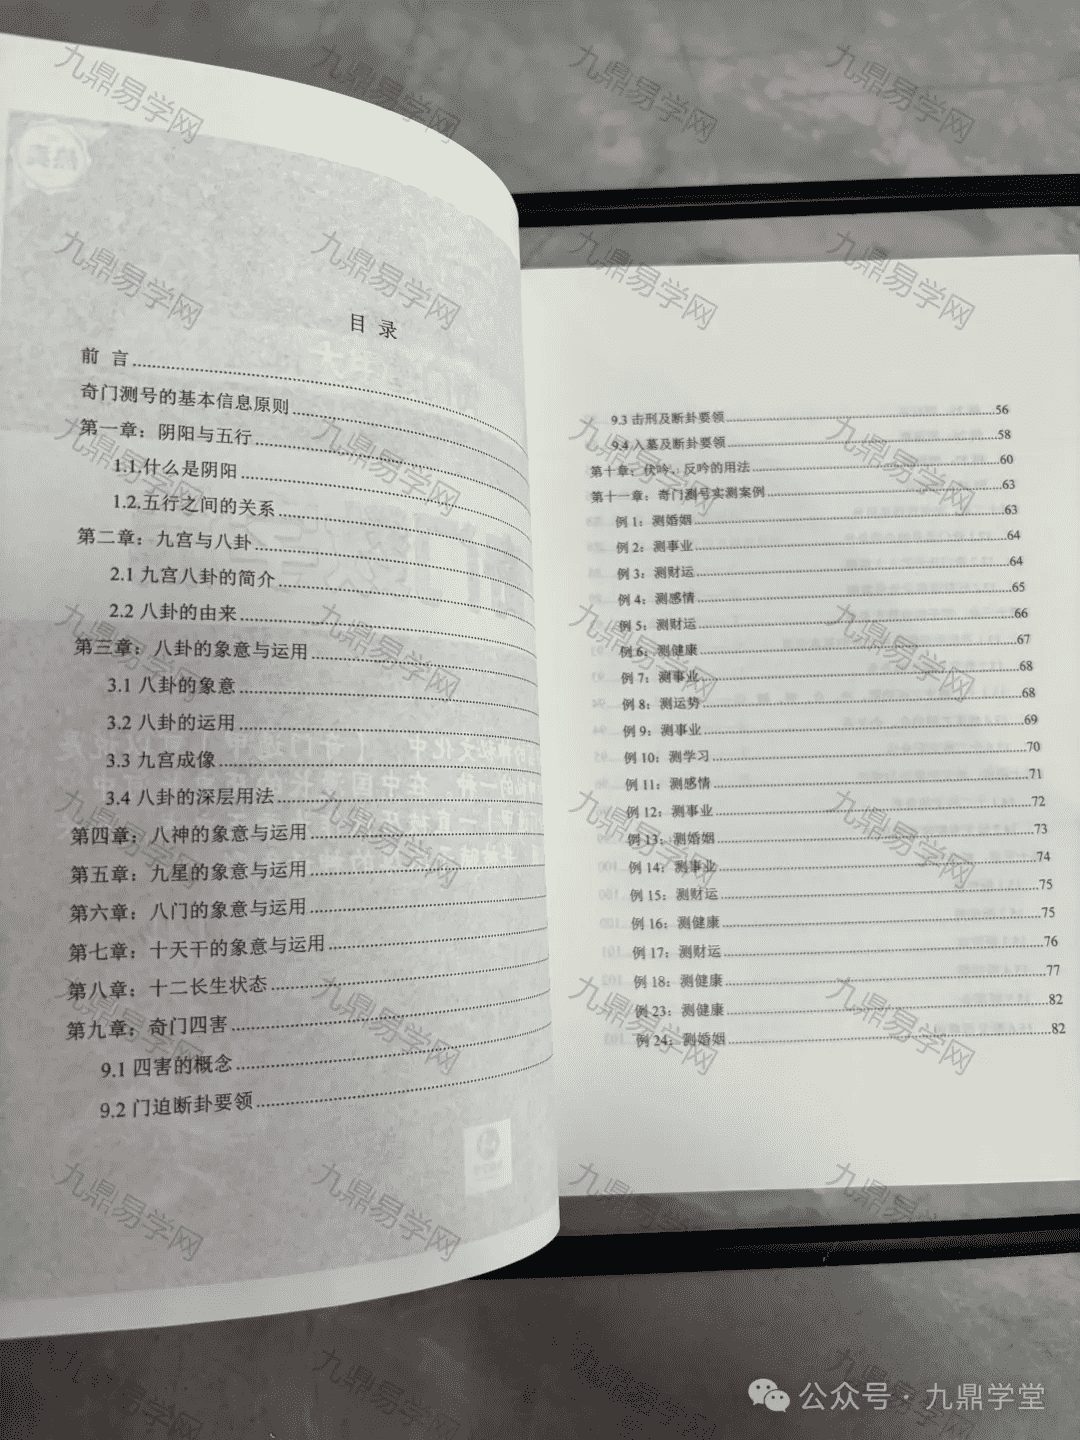 目 录
前 言
奇门测号的基本信息原则
第一章：阴阳与五行
1.1.什么是阴阳
1.2.五行之间的关系
第二章：九宫与八卦
2.1 九宫八卦的简介
2.2 八卦的由来
第三章：八卦的象意与运用
3.1 八卦的象意
3.2 八卦的运用
3.3 九宫成像
3.4 八卦的深层用法
第四章：八神的象意与运用
第五章：九星的象意与运用
第六章：八门的象意与运用
第七章：十天干的象意与运用
第八章：十二长生状态
第九章：奇门四害
9.1 四害的概念
9.2 门迫断卦要领
9.3 击刑及断卦要领 56
9.4 入墓及断卦要领 58
第十章：伏吟、反吟的用法 60
第十一章：奇门测号实测案例 63
例 1：测婚姻 63
例 2：测事业 64
例 3：测财运 64
例 4：测感情 65
例 5：测财运 66
例 6：测健康 67
例 7：测事业 68
例 8：测运势 68
例 9：测事业 69
例 10：测学习 70
例 11：测感情 71
例 12：测事业 72
例 13：测婚姻 73
例 14：测事业 74
例 15：测财运 75
例 16：测健康 75
例 17：测财运 76
例 18：测健康 77
例 23：测健康 82
例 24：测婚姻 82
九鼎易学网
公众号·九鼎学堂